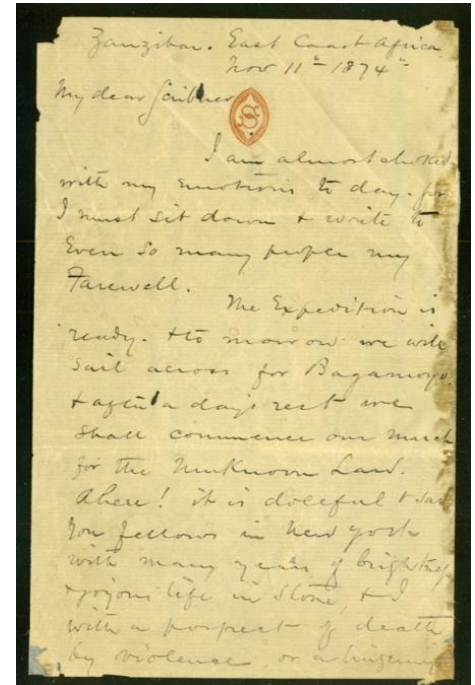 Zanzibar. East Coast Africa
Nov 11th 1874
My dear Scribner
I am almost choked
with my emotions to day. for
I must sit down & write to
Ever so many people my
Farewell.
The Expedition is
ready. & to morrow we will
Sail across for Bagamoyo
& after a days rest we
shall commence our march
for the Unknown Land.
it is doleful & sad
You fellows in New York
with many years of brightness
& joyous life in Store, & I
with a prospect of death
by violence, or a lingering